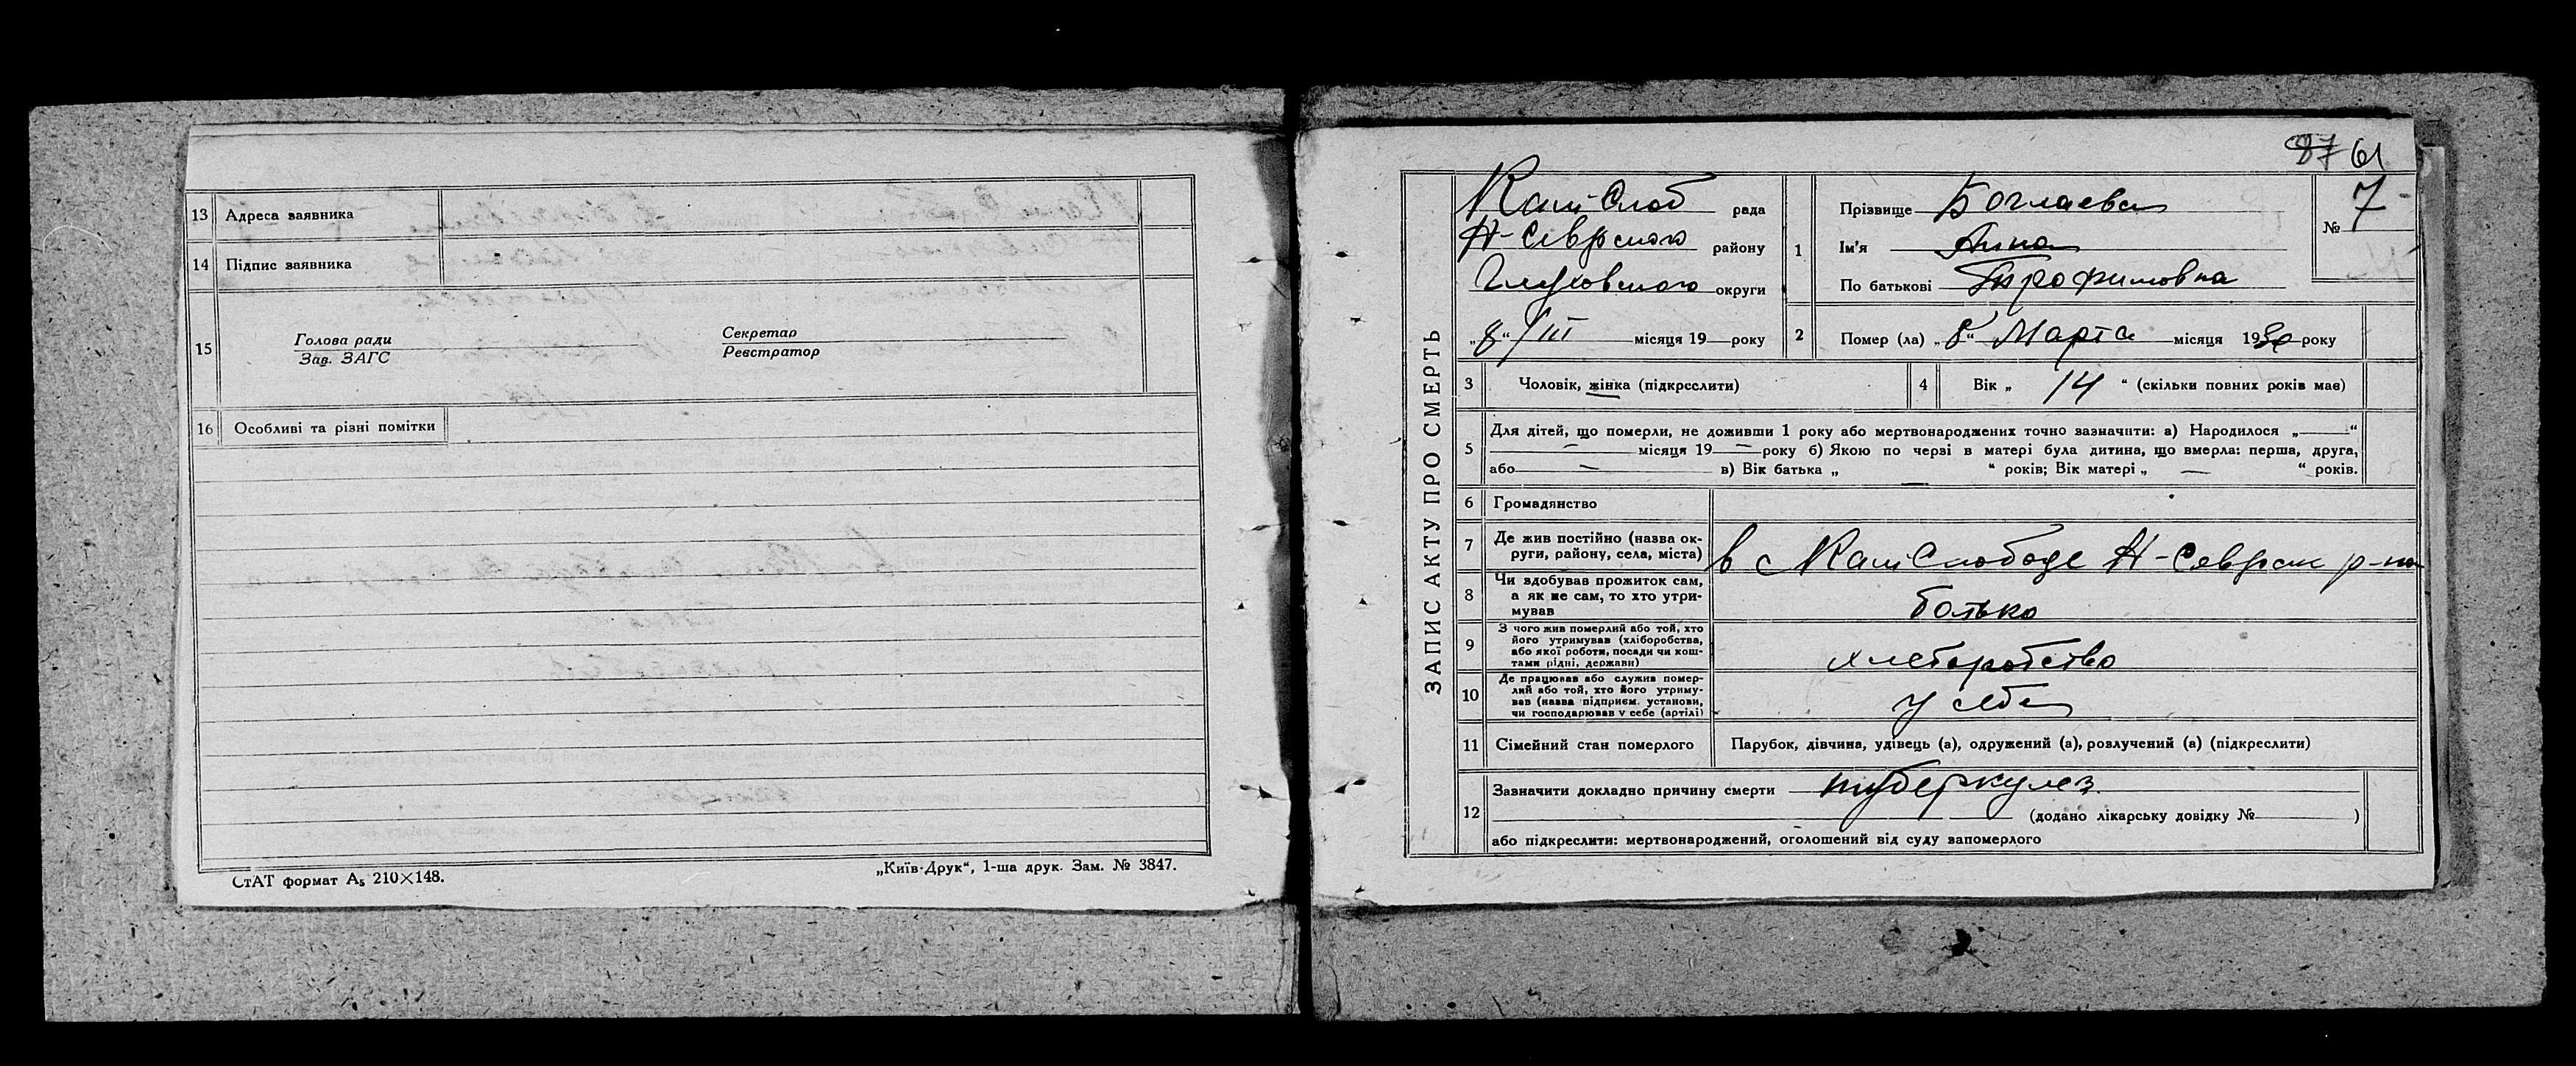 13 Адреса заявника
14 Підпис заявника
15 Голова ради
Зав. ЗАГС
Секретар
Реєстратор
16 Особливі та різні помітки
СтАТ формат А5 210×148.
„Київ-Друк“, 1-ша друк. Зам. № 3847.
87 61
ЗАПИС АКТУ ПРО СМЕРТЬ
Кам Слоб рада
Н-Сіврского району
Глуховського округи
„8“/III місяця 19 року
1 Прізвище Боглаева
Ім'я Анна
По батькові Трофимовна
№ 7
2 Помер (ла) „8“ Марта місяця 1930 року
3 Чоловік, жінка (підкреслити)
4 Вік „ 14 “ (скільки повних років має)
5 Для дітей, що померли, не доживши 1 року або мертвонароджених точно зазначити: а) Народилося „ — “
— місяця 19 — року б) Якою по черзі в матері була дитина, що вмерла: перша, друга,
або — в) Вік батька „ — “ років; Вік матері „ — “ років.
6 Громадянство
7 Де жив постійно (назва ок-
руги, району, села, міста) в с Кам Слободе Н-Сіврск р-на
8 Чи здобував прожиток сам,
а як не сам, то хто утри-
мував батько
9 З чого жив померлий або той, хто
його утримував (хліборобства,
або якої роботи, посади чи кош-
тами рідні, держави) хлеборобство
10 Де працював або служив помер-
лий або той, хто його утриму-
вав (назва підприєм. установи,
чи господарював у себе (артілі) у себе
11 Сімейний стан померлого Парубок, дівчина, удівець (а), одружений (а), розлучений (а) (підкреслити)
12 Зазначити докладно причину смерти туберкулез
(додано лікарську довідку № )
або підкреслити: мертвонароджений, оголошений від суду запомерлого